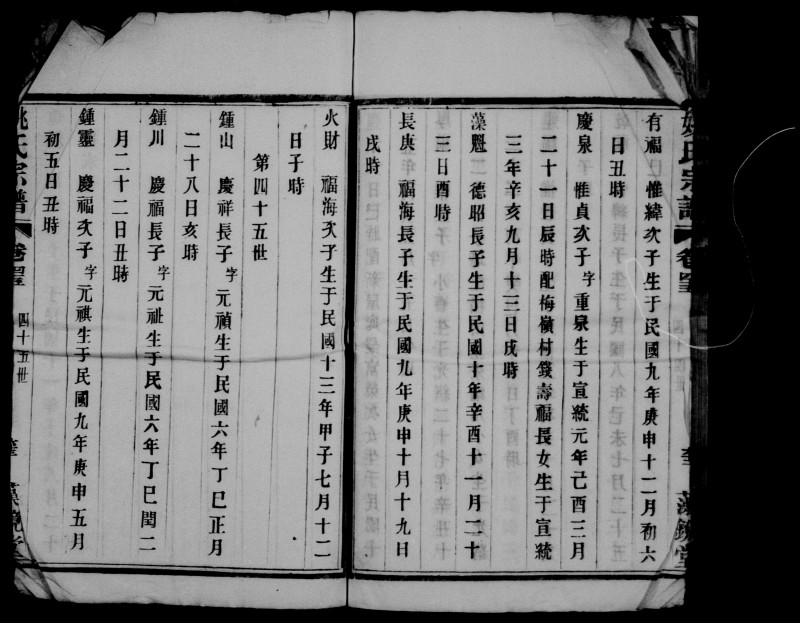 姚氏宗譜 卷
藻鏡堂
有福 惟緯次子生于民國九年庚申十二月初六
日丑時
慶泉 惟貞次子字重泉生于宣統元年己酉三月
二十一日辰時配梅嶺村錢壽福長女生于宣統
三年辛亥九月十三日戌時
藻魁 德昭長子生于民國十年辛酉十一月二十
三日酉時
長庚 福海長子生于民國九年庚申十月十九日
戌時
火財 福海次子生于民國十三年甲子七月十二
日子時
第四十五世
鍾山 慶祥長子字元禎生于民國六年丁巳正月
二十八日亥時
鍾川 慶福長子字元祉生于民國六年丁巳閏二
月二十二日丑時
鍾靈 慶福次子字元祺生于民國九年庚申五月
初五日丑時
姚氏宗譜 卷 四十五世
藻鏡堂